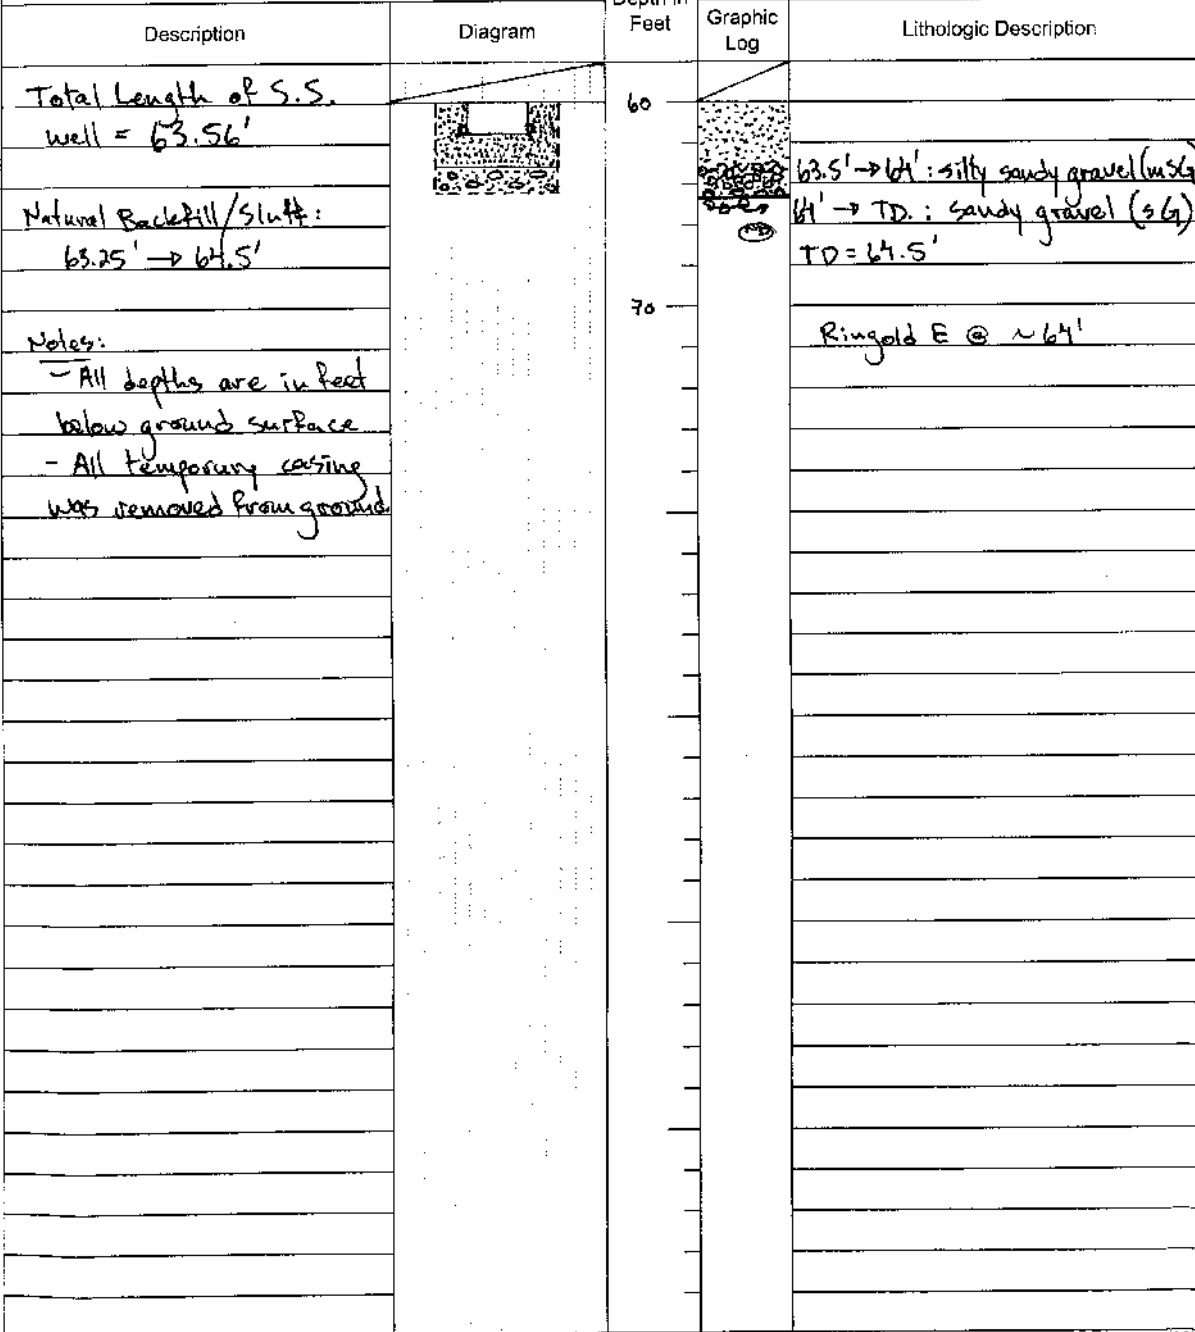 Description
Diagram
Depth in
Feet
Graphic
Log
Lithologic Description
Total Length of S.S.
well = 63.56'
Natural Backfill/Sluff:
63.25' → 64.5'
Notes:
- All depths are in feet
below ground surface
- All temporary casing
was removed from ground.
60
70
63.5' → 64' : silty sandy gravel (msG)
64' → TD. : sandy gravel (sG)
TD = 64.5'
Ringold E @ ~ 64'